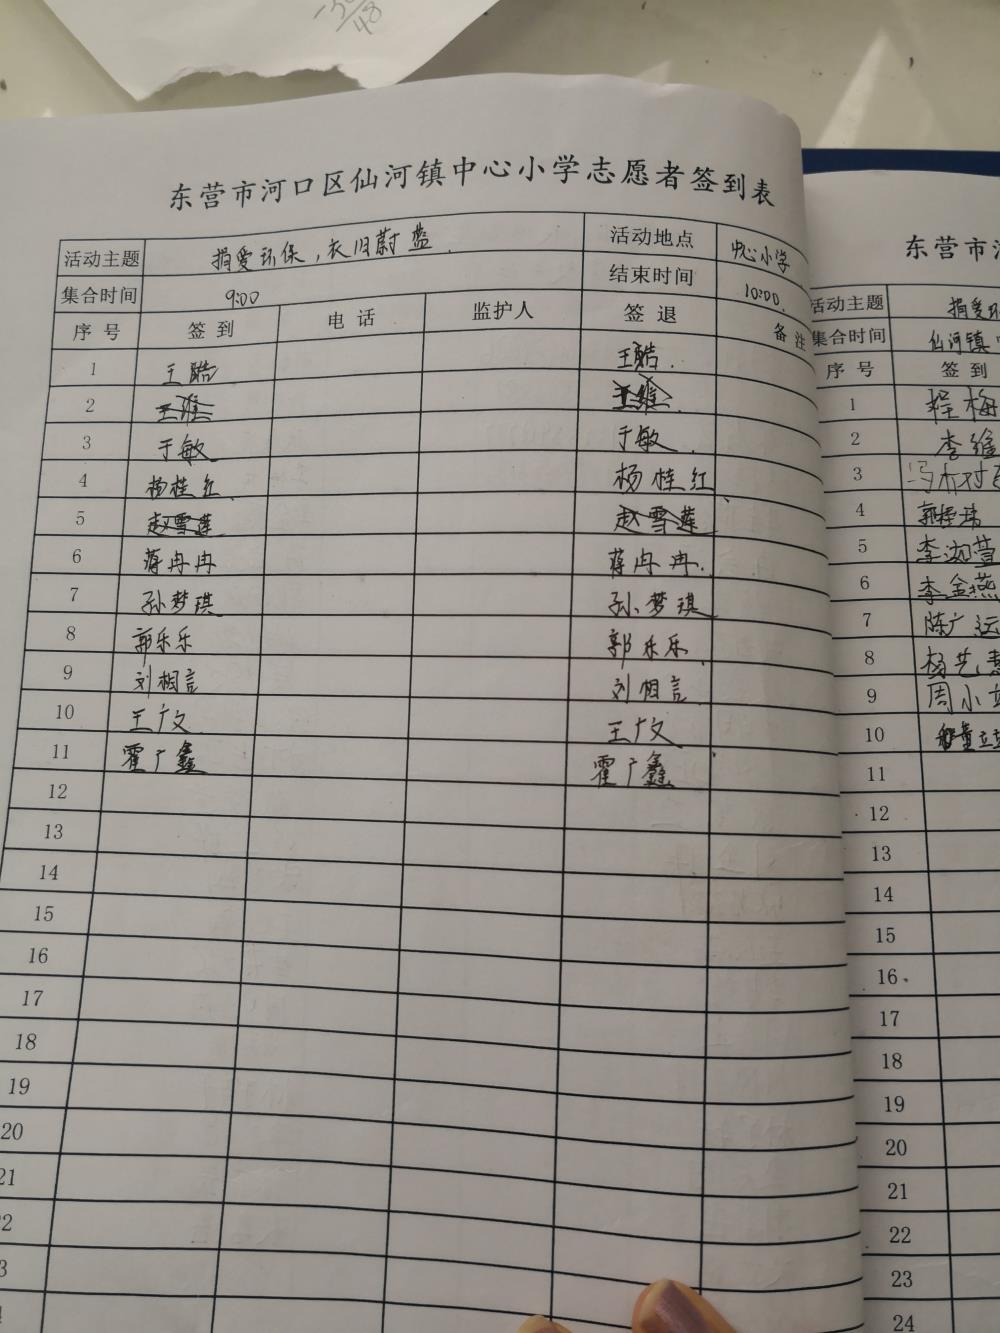 -30
48
东营市河口区仙河镇中心小学志愿者签到表
活动主题 捐爱环保，衣旧蔚蓝. 活动地点 中心小学
集合时间 9:00 结束时间 10:00.
序号 签到 电话 监护人 签退 备注
1 王酷 王酷.
2 王维 王维.
3 于敏 于敏.
4 杨桂红. 杨桂红
5 赵雪莲 赵雪莲
6 蒋冉冉 蒋冉冉.
7 孙梦琪 孙梦琪
8 郭乐乐 郭乐乐
9 刘相言 刘相言
10 王广文. 王广文
11 霍广鑫 霍广鑫
12
13
14
15
16
17
18
19
20
21
2
3
东营市
活动主题 捐爱环
集合时间 仙河镇
序号 签到
1 程梅
2 李维
3 冯
4 郭
5 李淑萱
6 李金燕
7 陈广运
8 杨艺
9 周小
10 童立
11
12
13
14
15
16
17
18
19
20
21
22
23
24